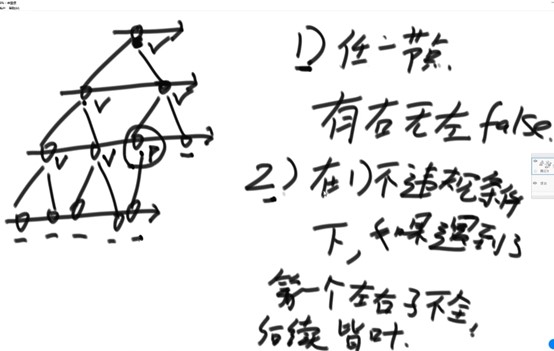 1) 任一节点,
有右无左 false.
2) 在1)不违规条件
下, 如果遇到了
第一个左右子不全,
后续皆叶.
P